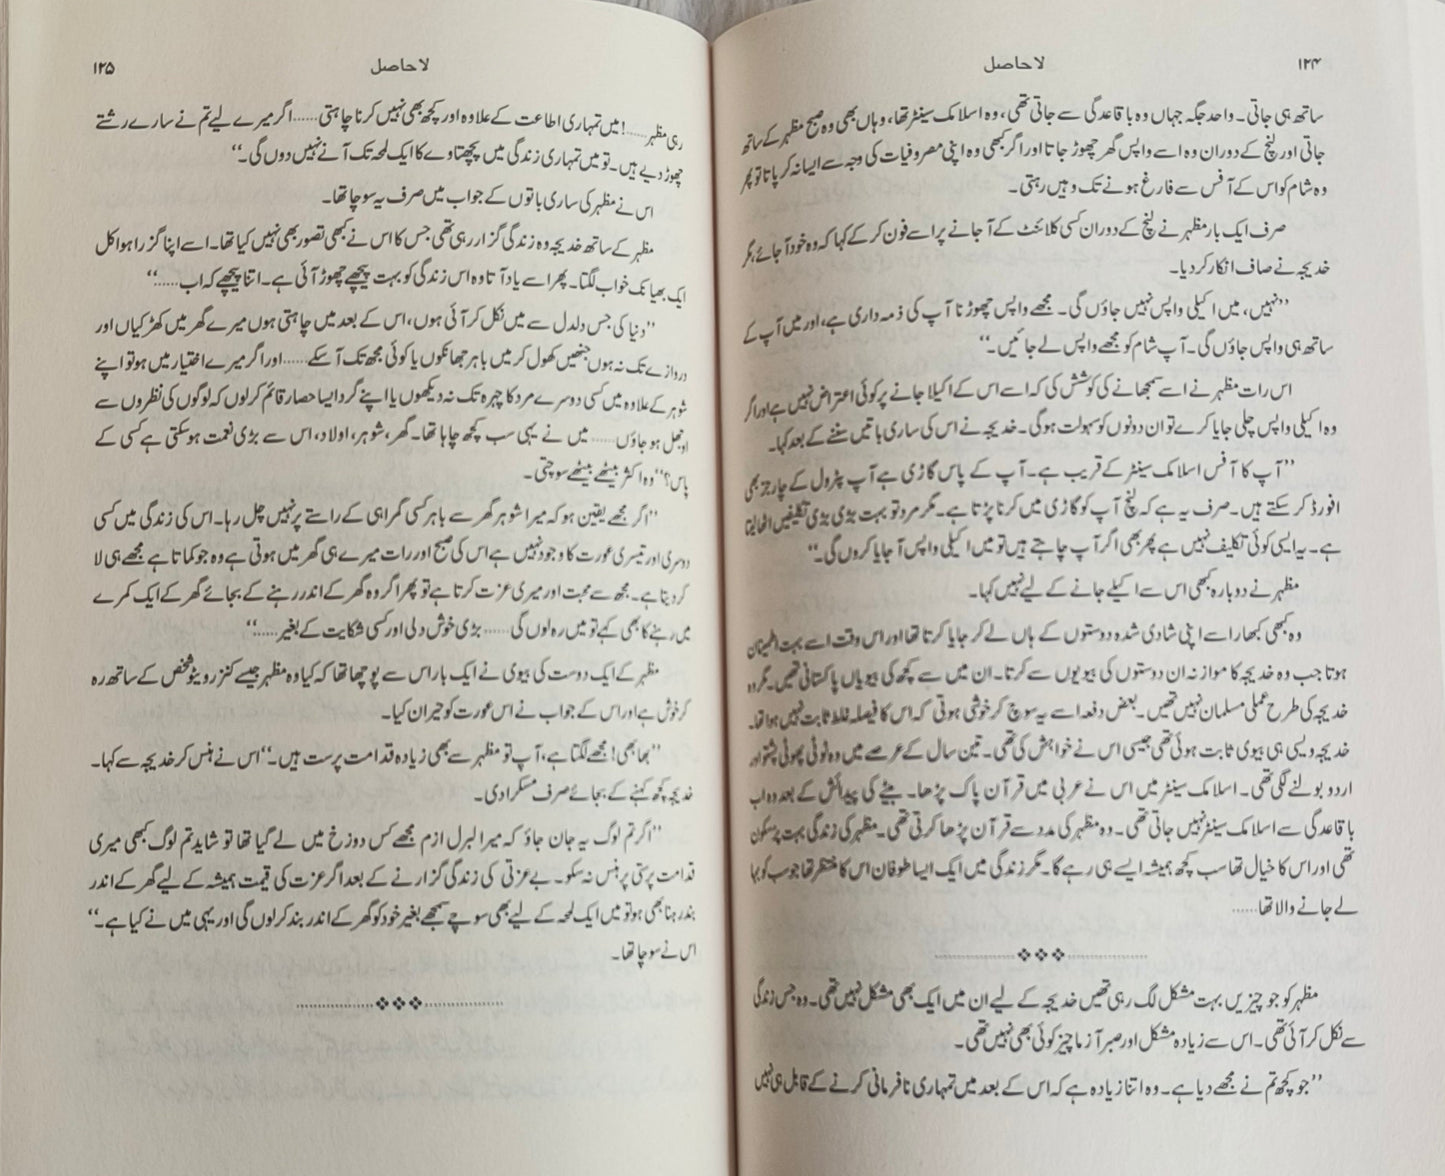 ۱۲۴
لاحاصل
ساتھ ہی جاتی۔ واحد جگہ جہاں وہ باقاعدگی سے جاتی تھی، وہ اسلامک سینٹر تھا، وہاں بھی وہ صبح مظہر کے ساتھ
جاتی اور لنچ کے دوران وہ اسے واپس گھر چھوڑ جاتا اور اگر کبھی وہ اپنی مصروفیات کی وجہ سے ایسا نہ کر پاتا تو پھر
وہ شام کو اس کے آفس سے فارغ ہونے تک وہیں رہتی۔
صرف ایک بار مظہر نے لنچ کے دوران کسی کلائنٹ کے آ جانے پر اسے فون کر کے کہا کہ وہ خود آ جائے، مگر
خدیجہ نے صاف انکار کر دیا۔
’’نہیں، میں اکیلی واپس نہیں جاؤں گی۔ مجھے واپس چھوڑنا آپ کی ذمہ داری ہے، اور میں آپ کے
ساتھ ہی واپس جاؤں گی۔ آپ شام کو مجھے واپس لے جائیں۔‘‘
اس رات مظہر نے اسے سمجھانے کی کوشش کی کہ اسے اس کے اکیلا جانے پر کوئی اعتراض نہیں ہے اور اگر
وہ اکیلی واپس چلی جایا کرے تو ان دونوں کو سہولت ہوگی۔ خدیجہ نے اس کی ساری باتیں سننے کے بعد کہا۔
’’آپ کا آفس اسلامک سینٹر کے قریب ہے۔ آپ کے پاس گاڑی ہے آپ پٹرول کے چارجز بھی
افورڈ کر سکتے ہیں۔ صرف یہ ہے کہ لنچ آپ کو گاڑی میں کرنا پڑتا ہے۔ مگر مرد تو بہت بڑی بڑی تکلیفیں اٹھا لیتا
ہے۔ یہ ایسی کوئی تکلیف نہیں ہے پھر بھی اگر آپ چاہتے ہیں تو میں اکیلی واپس آ جایا کروں گی۔‘‘
مظہر نے دوبارہ کبھی اس سے اکیلے جانے کے لیے نہیں کہا۔
وہ کبھی کبھار اسے اپنی شادی شدہ دوستوں کے ہاں لے کر جایا کرتا تھا اور اس وقت اسے بہت اطمینان
ہوتا جب وہ خدیجہ کا موازنہ ان دوستوں کی بیویوں سے کرتا۔ ان میں سے کچھ کی بیویاں پاکستانی تھیں۔ مگر وہ
خدیجہ کی طرح عملی مسلمان نہیں تھیں۔ بعض دفعہ اسے یہ سوچ کر خوشی ہوتی کہ اس کا فیصلہ غلط ثابت نہیں ہوا تھا۔
خدیجہ ویسی ہی بیوی ثابت ہوئی تھی جیسی اس نے خواہش کی تھی۔ تین سال کے عرصے میں وہ ٹوٹی پھوٹی پشتو اور
اردو بولنے لگی تھی۔ اسلامک سینٹر میں اس نے عربی میں قرآن پاک پڑھا۔ بیٹے کی پیدائش کے بعد وہ اب
باقاعدگی سے اسلامک سینٹر نہیں جاتی تھی۔ وہ مظہر کی مدد سے قرآن پڑھا کرتی تھی۔ مظہر کی زندگی بہت پرسکون
تھی اور اس کا خیال تھا سب کچھ ہمیشہ ایسے ہی رہے گا۔ مگر زندگی میں ایک ایسا طوفان اس کا منتظر تھا جو سب کو بہا
لے جانے والا تھا......
مظہر کو جو چیزیں بہت مشکل لگ رہی تھیں خدیجہ کے لیے ان میں ایک بھی مشکل نہیں تھی۔ وہ جس زندگی
سے نکل کر آئی تھی۔ اس سے زیادہ مشکل اور صبر آزما چیز کوئی بھی نہیں تھی۔
’’جو کچھ تم نے مجھے دیا ہے۔ وہ اتنا زیادہ ہے کہ اس کے بعد میں تمہاری نافرمانی کرنے کے قابل ہی نہیں
لاحاصل
۱۲۵
رہی مظہر......! میں تمہاری اطاعت کے علاوہ اور کچھ بھی نہیں کرنا چاہتی...... اگر میرے لیے تم نے سارے رشتے
چھوڑ دیے ہیں۔ تو میں تمہاری زندگی میں پچھتاوے کا ایک لمحہ تک آنے نہیں دوں گی۔‘‘
اس نے مظہر کی ساری باتوں کے جواب میں صرف یہ سوچا تھا۔
مظہر کے ساتھ خدیجہ وہ زندگی گزار رہی تھی جس کا اس نے کبھی تصور بھی نہیں کیا تھا۔ اسے اپنا گزرا ہوا کل
ایک بھیانک خواب لگتا۔ پھر اسے یاد آتا وہ اس زندگی کو بہت پیچھے چھوڑ آئی ہے۔ اتنا پیچھے کہ اب......‘‘
’’دنیا کی جس دلدل سے میں نکل کر آئی ہوں، اس کے بعد میں چاہتی ہوں میرے گھر میں کھڑکیاں اور
دروازے تک نہ ہوں جنھیں کھول کر میں باہر جھانکوں یا کوئی مجھ تک آ سکے...... اور اگر میرے اختیار میں ہو تو اپنے
شوہر کے علاوہ میں کسی دوسرے مرد کا چہرہ تک نہ دیکھوں یا اپنے گرد ایسا حصار قائم کر لوں کہ لوگوں کی نظروں سے
اوجھل ہو جاؤں...... میں نے یہی سب کچھ چاہا تھا۔ گھر، شوہر، اولاد، اس سے بڑی نعمت ہو سکتی ہے کسی کے
پاس؟‘‘ وہ اکثر بیٹھے بیٹھے سوچتی۔
’’اگر مجھے یقین ہو کہ میرا شوہر گھر سے باہر کسی گمراہی کے راستے پر نہیں چل رہا۔ اس کی زندگی میں کسی
دوسری اور تیسری عورت کا وجود نہیں ہے اس کی صبح اور رات میرے ہی گھر میں ہوتی ہے وہ جو کماتا ہے مجھے ہی لا
کر دیتا ہے۔ مجھ سے محبت اور میری عزت کرتا ہے تو پھر اگر وہ گھر کے اندر رہنے کے بجائے گھر کے ایک کمرے
میں رہنے کا بھی کہے تو میں رہ لوں گی...... بڑی خوش دلی اور کسی شکایت کے بغیر......‘‘
مظہر کے ایک دوست کی بیوی نے ایک بار اس سے پوچھا تھا کہ کیا وہ مظہر جیسے کنزرویٹو شخص کے ساتھ رہ
کر خوش ہے اور اس کے جواب نے اس عورت کو حیران کیا۔
’’بھابھی! مجھے لگتا ہے، آپ تو مظہر سے بھی زیادہ قدامت پرست ہیں۔‘‘ اس نے ہنس کر خدیجہ سے کہا۔
خدیجہ کچھ کہنے کے بجائے صرف مسکرا دی۔
’’اگر تم لوگ یہ جان جاؤ کہ میرا لبرل ازم مجھے کس دوزخ میں لے گیا تھا تو شاید تم لوگ کبھی میری
قدامت پرستی پر ہنس نہ سکو۔ بے عزتی کی زندگی گزارنے کے بعد اگر عزت کی قیمت ہمیشہ کے لیے گھر کے اندر
بند رہنا بھی ہو تو میں ایک لمحہ کے لیے بھی سوچے سمجھے بغیر خود کو گھر کے اندر بند کر لوں گی اور یہی میں نے کیا ہے۔‘‘
اس نے سوچا تھا۔